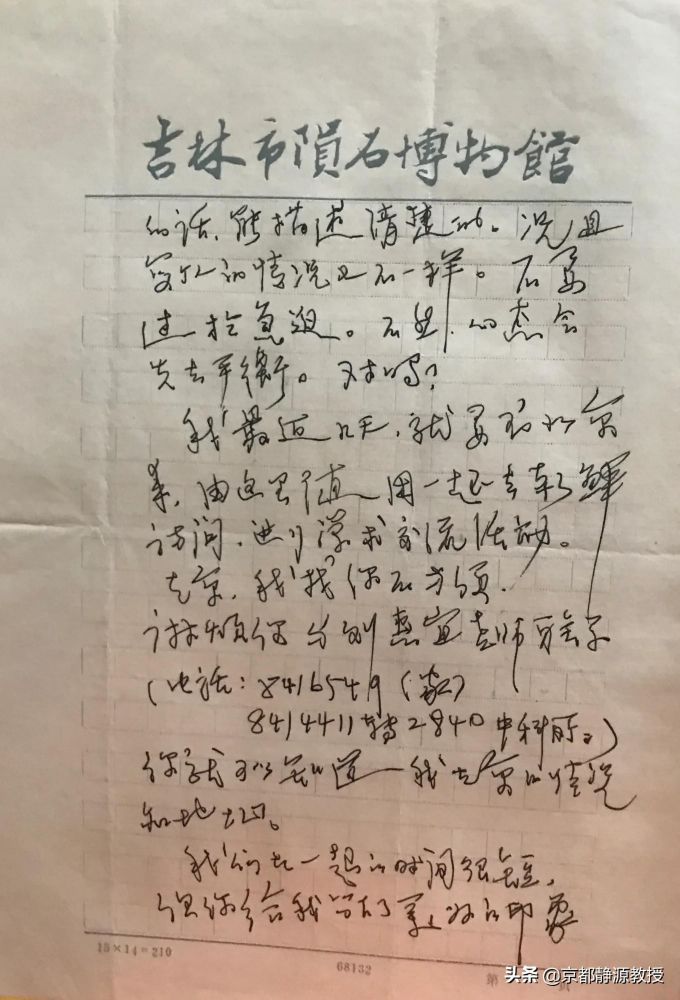 吉林市陨石博物館
的话，能描述清楚的。况且
室外的情况又不一样。不要
过于急迫。不然，心态会
失去平衡。对吗？
我最近几天，就要到北京
来，由这里 一起去朝鲜
访问，进行学术交流活动。
在京，我找你不方便，
请你 老师 联系
（电话：8416549（家）
8414411转2840 中科所）
你就可以知道我在京的情况
和地址。
我们在一起的时间很短，
但你给我留下了美好的印象
15×14=210
68132
第 页
头条 @京都静源教授